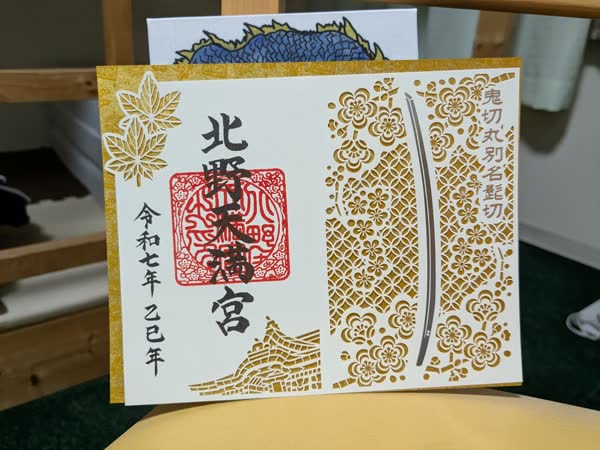 鬼切丸別名髭切
北野天満宮
令和七年 乙巳年